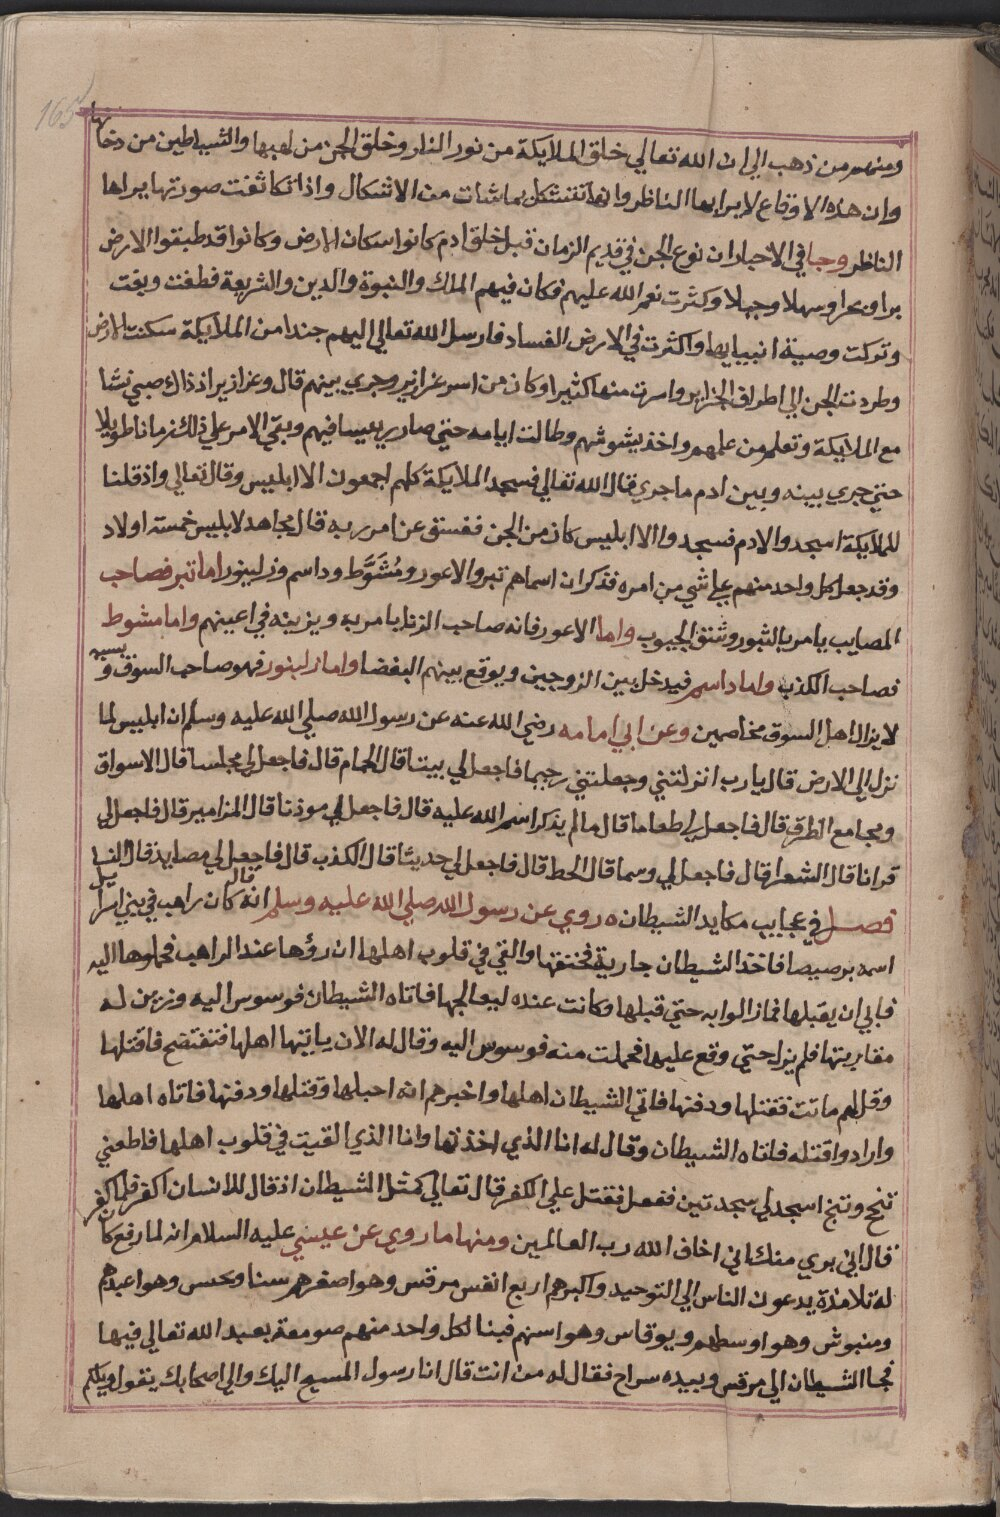 165
ومنهم من ذهب الي ان الله تعالي خلق الملايكة من نور النار وخلق الجن من لهبها والشياطين من دخانها
وان هذه الانواع لا يراها الناظر وانها تتشكل بما شات من الاشكال واذا تكاثفت صورتها يراها
الناظر وجا في الاخبار ان نوع الجن في قديم الزمان قبل خلق ادم كانوا سكان الارض وكانوا قد طبقوا الارض
برا وبحرا وسهلا وجبلا وكثرت نعم الله عليهم فكان فيهم الملك والنبوة والدين والشريعة فطغت وبغت
وتركت وصية انبيايها واكثرت في الارض الفساد فارسل الله تعالي اليهم جندا من الملايكة سكنت الارض
وطردت الجن الي اطراف الجزاير واسرت منها كثيرا وكان من اسر عزازير وجري بينهم قال وعزازير اذ ذاك صبي نشا
مع الملايكة وتعلم من علمهم واخذ يشوشهم وطالت ايامه حتي صار رييسا فيهم وبقي الامر علي ذلك زمانا طويلا
حتي جري بينه وبين ادم ما جري قال الله تعالي فسجد الملايكة كلهم اجمعون الا ابليس وقال تعالي واذ قلنا
للملايكة اسجدوا لادم فسجدوا الا ابليس كان من الجن ففسق عن امر ربه قال مجاهد لابليس خمسة اولاد
وقد جعل كل واحد منهم علي شي من امره فذكر ان اسماهم تبر والاعور ومُشَوَّط وداسم وزلينور اما تبر فصاحب
المصايب يامر بالثبور وشق الجيوب واما الاعور فانه صاحب الزنا يامر به ويزينه في اعينهم واما مشوط
فصاحب الكذب واما داسم فيدخل بين الزوجين ويوقع بينهم البغضا واما زلينور فهو صاحب السوق و بسببه
لا يزال اهل السوق مخاصمين وعن ابي امامه رضي الله عنه عن رسول الله صلي الله عليه وسلم ان ابليس لما
نزل الي الارض قال يارب انزلتني وجعلتني رجيما فاجعل لي بيتا قال الحمام قال فاجعل لي مجلسا قال الاسواق
ومجامع الطرق قال فاجعل لي طعاما قال ما لم يذكر اسم الله عليه قال فاجعل لي موذنا قال المزامير قال فاجعل لي
قرانا قال الشعر قال فاجعل لي وسما قال الحط قال فاجعل لي حديثا قال الكذب قال فاجعل لي مصايد قال النسا
فصل في عجايب مكايد الشيطان روي عن رسول الله صلي الله عليه وسلم قال انه كان راهب في بني اسراييل
اسمه برصيصا فاخذ الشيطان جارية فخنقها والقي في قلوب اهلها ان رؤها عند الراهب فحملوها اليه
فابي ان يقبلها فمازالوا به حتي قبلها وكانت عنده ليعالجها فاتاه الشيطان فوسوس اليه وزين له
مقاربتها فلم يزل حتي وقع عليها فحملت منه فوسوس اليه وقال له الان ياتيها اهلها فتفتضح فاقتلها
وقل لهم ماتت فقتلها ودفنها فاتي الشيطان اهلها واخبرهم انه احبلها وقتلها ودفنها فاتاه اهلها
وارادوا قتله فاتاه الشيطان وقال له انا الذي اخذتها وانا الذي القيت في قلوب اهلها فاطعني
تنج وتنج اسجد لي سجدتين ففعل فقتل علي الكفر قال تعالي كمثل الشيطان اذ قال للانسان اكفر فلما كفر
قال اني بري منك اني اخاف الله رب العالمين ومنها ما روي عن عيسي عليه السلام انه لما رفع كان
له تلامذة يدعون الناس الي التوحيد واكبرهم اربع انفس مرقس وهو اصغرهم سنا ويحسن وهو اعبدهم
ومنبوش وهو اوسطهم ويوقاس وهو اسنهم فبنا لكل واحد منهم صومعة يعبد الله تعالي فيها
فجا الشيطان الي مرقس وبيده سراح فقال له من انت قال انا رسول المسيح اليك والي اصحابك يقول ويلكم